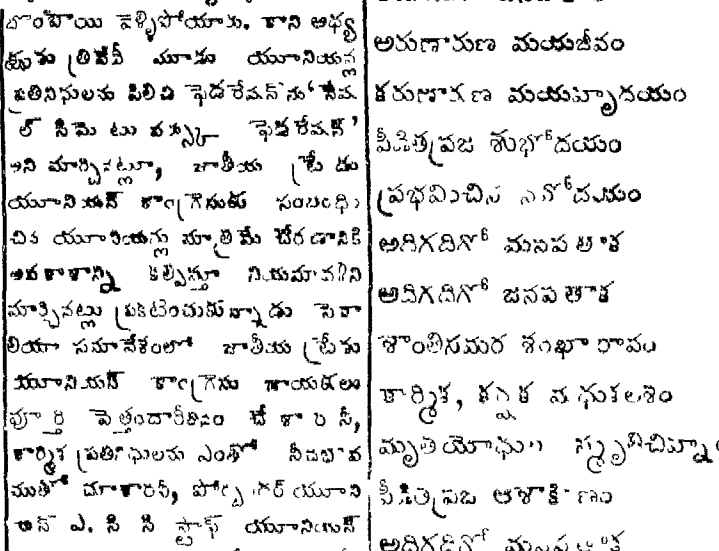 బొంబాయి వెళ్ళిపోయారు. కాని అధ్య
క్షుడు త్రివేదీ మూడు యూనియన్ల
ప్రతినిధులను పిలిచి ఫెడరేషన్‌ను 'నేష
ల్ సిమెటు వర్కర్స్ ఫెడరేషన్'
అని మార్చినట్లూ, జాతీయ ట్రేడు
యూనియన్ కాంగ్రెసుకు సంబంధిం
చిన యూనియన్లు మాత్రమే చేరడానికి
అవకాశాన్ని కల్పిస్తూ నియమావళిని
మార్చినట్లు ప్రకటించుకున్నాడు సెవా
లియా సమావేశంలో జాతీయ ట్రేడు
యూనియన్ కాంగ్రెసు నాయకులు
పూర్తి పెత్తందారీతనం చేశారనీ,
కార్మిక ప్రతినిధులను ఎంతో నీచభావ
ముతో చూశారనీ, పోర్బందర్ యూని
యన్ ఎ. సి సి స్టాఫ్ యూనియన్
అరుణారుణ మయజీవం
కరుణారుణ మయహృదయం
పీడిత ప్రజ శుభోదయం
ప్రభవించిన నవోదయం
అదిగదిగో మనపతాక
అదిగదిగో జనపతాక
శాంతిసమర శంఖారావం
కార్మిక, కర్షక మధుకలశం
మృతయోధుల స్మృతిచిహ్నం
పీడిత ప్రజ ఆశాకిరణం
అదిగదిగో మనపతాక